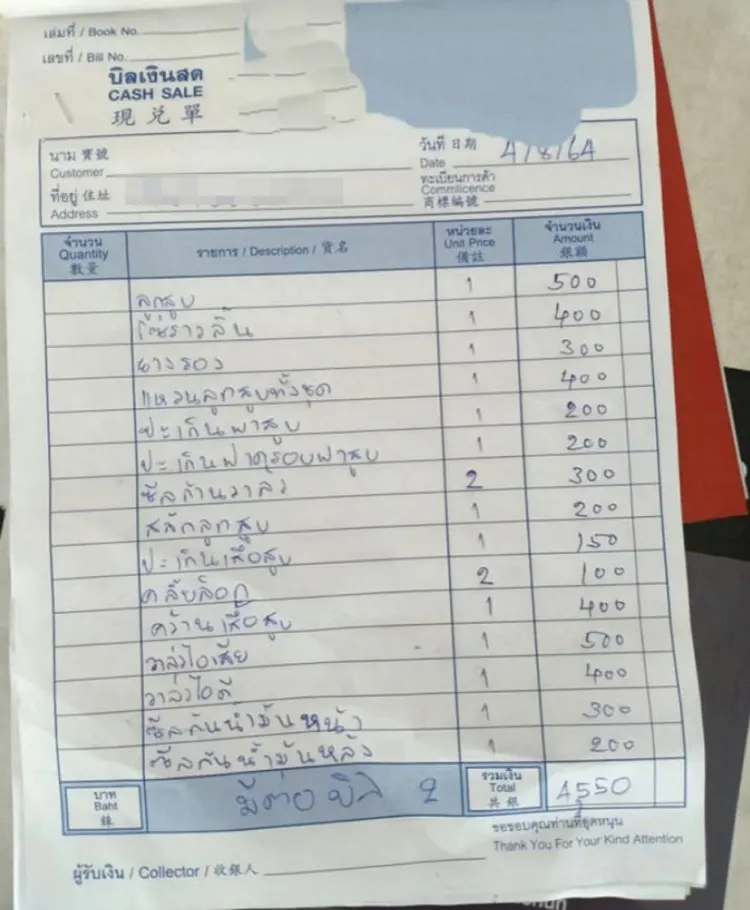 เล่มที่ / Book No.
เลขที่ / Bill No.
บิลเงินสด
CASH SALE
現兌單
นาม 寶號
Customer
วันที่ 日期 4/8/64
Date
ที่อยู่ 住址
Address
ทะเบียนการค้า
Commlicence
商標編號
จำนวน Quantity 數量 รายการ / Description / 貨名 หน่วยละ Unit Price 備註 จำนวนเงิน Amount 銀額
ลูกสูบ 1 500
โซ่ราวลิ้น 1 400
ยางรอง 1 300
แหวนลูกสูบทั้งชุด 1 400
ปะเก็นฝาสูบ 1 200
ปะเก็นฝาครอบฝาสูบ 1 200
ซีลก้านวาล์ว 2 300
สลักลูกสูบ 1 200
ปะเก็นเสื้อสูบ 1 150
คลิ๊บล็อก 2 100
คว้านเสื้อสูบ 1 400
วาล์วไอเสีย 1 500
วาล์วไอดี 1 400
ซีลกันน้ำมันหน้า 1 300
ซีลกันน้ำมันหลัง 1 200
บาท Baht 銖 มีต่อ บิล 2 รวมเงิน Total 共銀 4550
ขอขอบคุณท่านที่อุดหนุน
Thank You For Your Kind Attention
ผู้รับเงิน / Collector / 收銀人